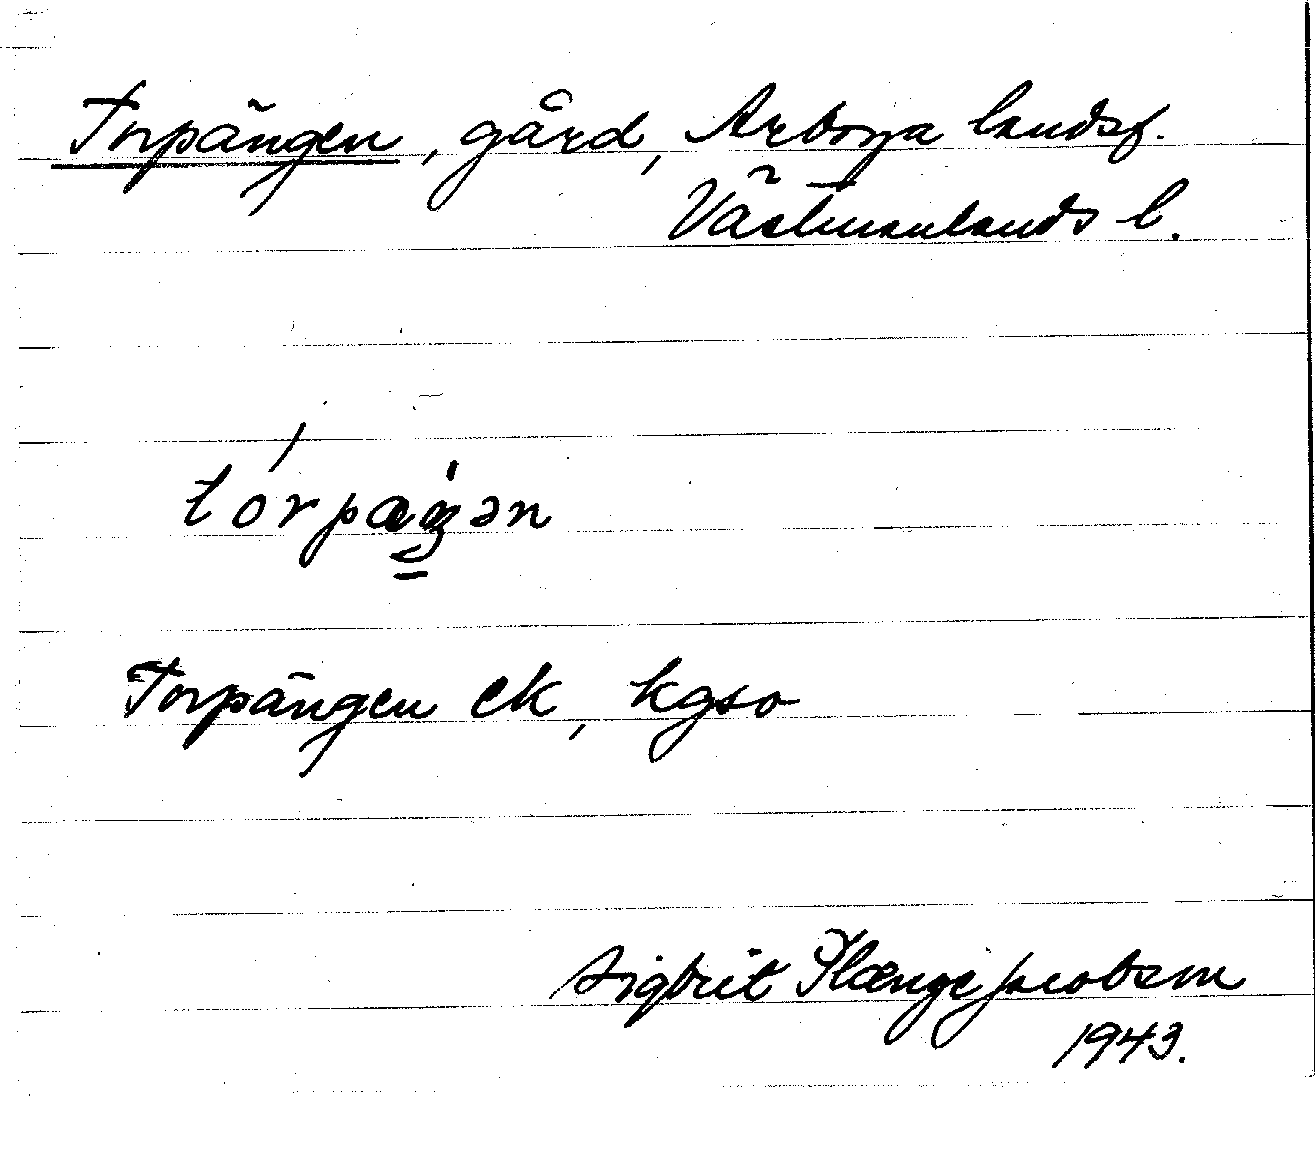 Torpängen, gård, Arboga landsf.
Västmanlands l.
Torpängen ek, kgso
Sigbrit Plænge Jacobson
1943.